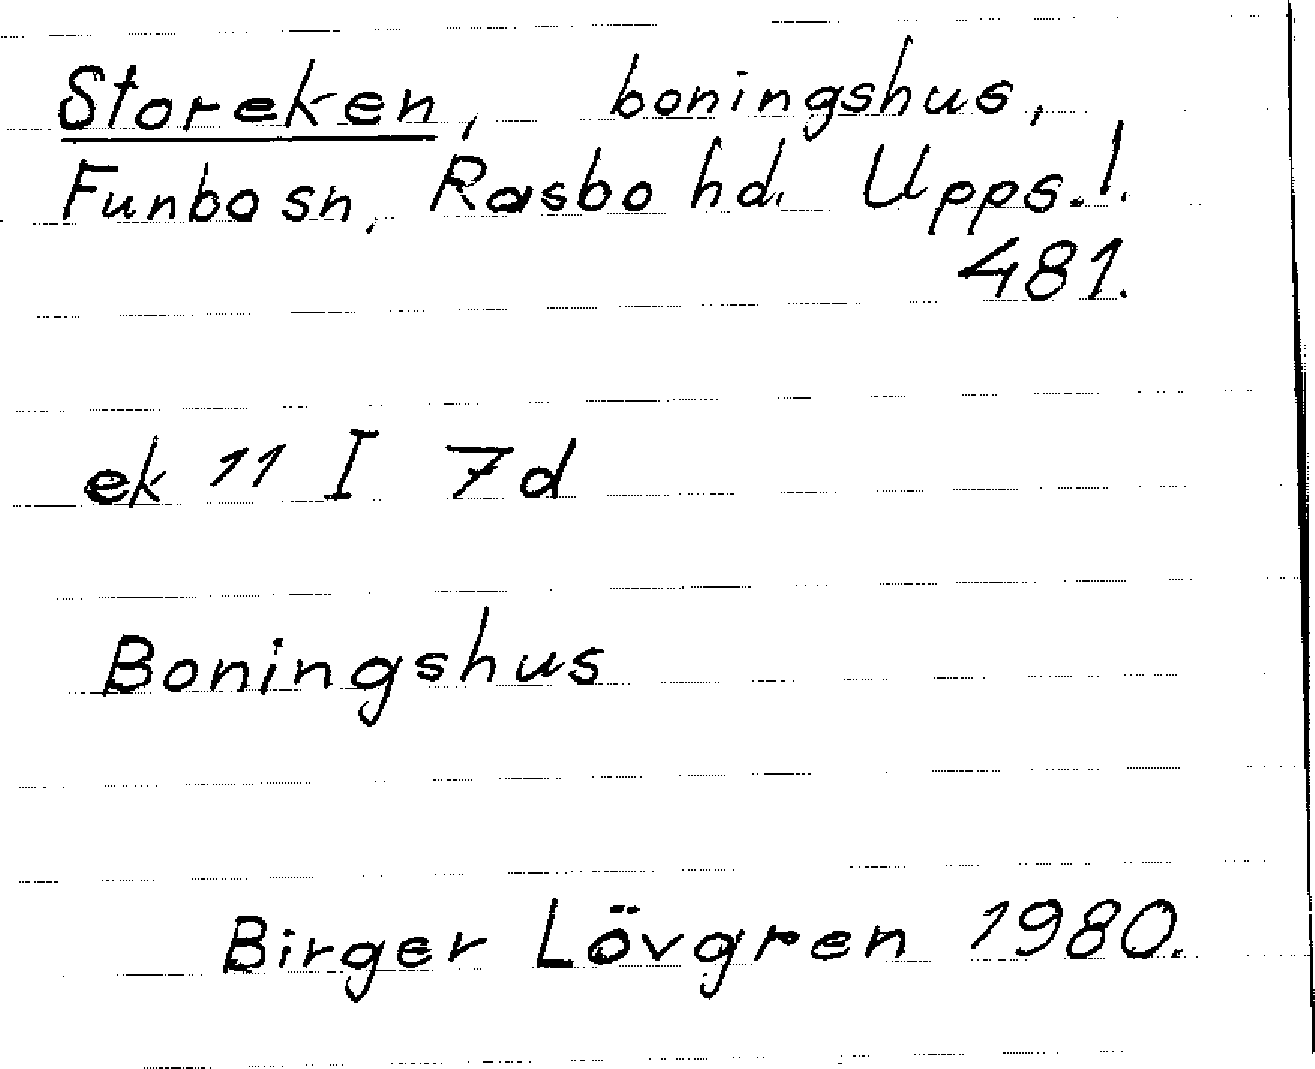 Storeken, boningshus,
Funbo sn, Rasbo hd. Upps. l.
481.
ek 11 I 7d
Boningshus
Birger Lövgren 1980.